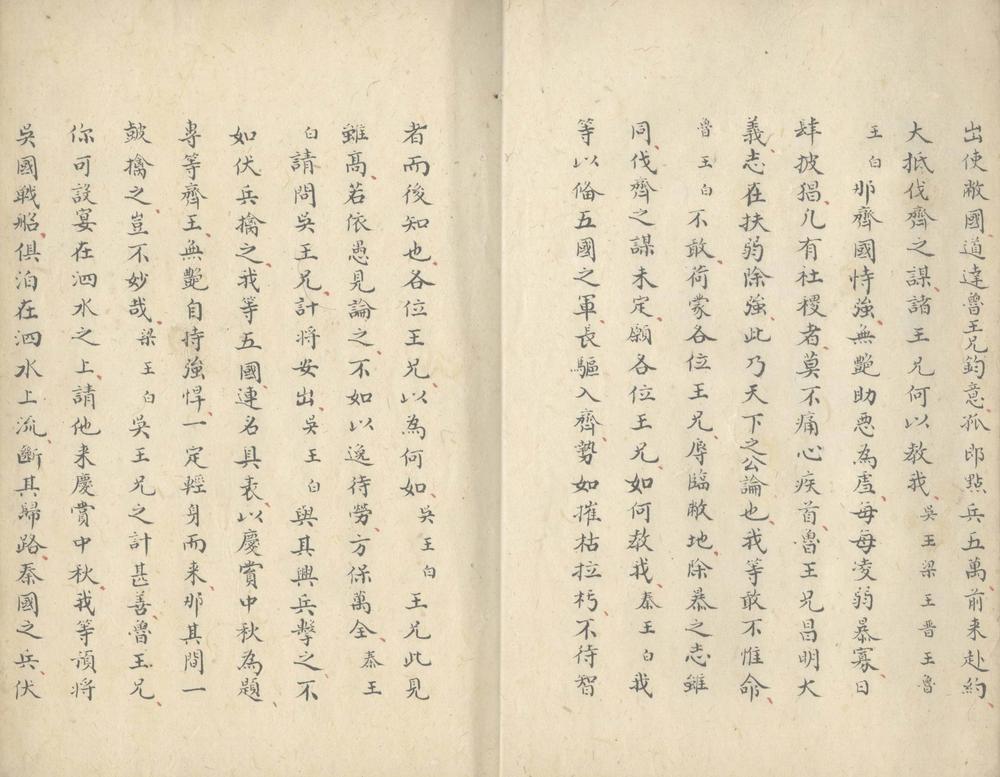 出使敝國道達魯王兄鈞意孤即點兵五萬前来赴約
大抵伐齊之謀諸王兄何以教我吳王梁王晋王魯
王白那齊國恃強無艶助悪為虐每每凌弱暴寡日
肆披猖凡有社稷者莫不痛心疾首魯王兄昌明大
義志在扶弱除強此乃天下之公論也我等敢不惟命
魯王白不敢荷蒙各位王兄辱臨敝地除暴之志雖
同伐齊之謀未定願各位王兄如何教我秦王白我
等以俻五國之軍長驅入齊勢如摧枯拉朽不待智
者而後知也各位王兄以為何如吳王白王兄此見
雖高若依愚見論之不如以逸待勞方保萬全秦王
白請問吳王兄計将安出吳王白與其興兵擊之不
如伏兵擒之我等五國連名具表以慶賞中秋為題
專等齊王無艶自持強悍一定輕身而来那其間一
皷擒之豈不妙哉梁王白吳王兄之計甚善魯王兄
你可設宴在泗水之上請他来慶賞中秋我等須将
吳國戰船俱泊在泗水上流斷其歸路秦國之兵伏